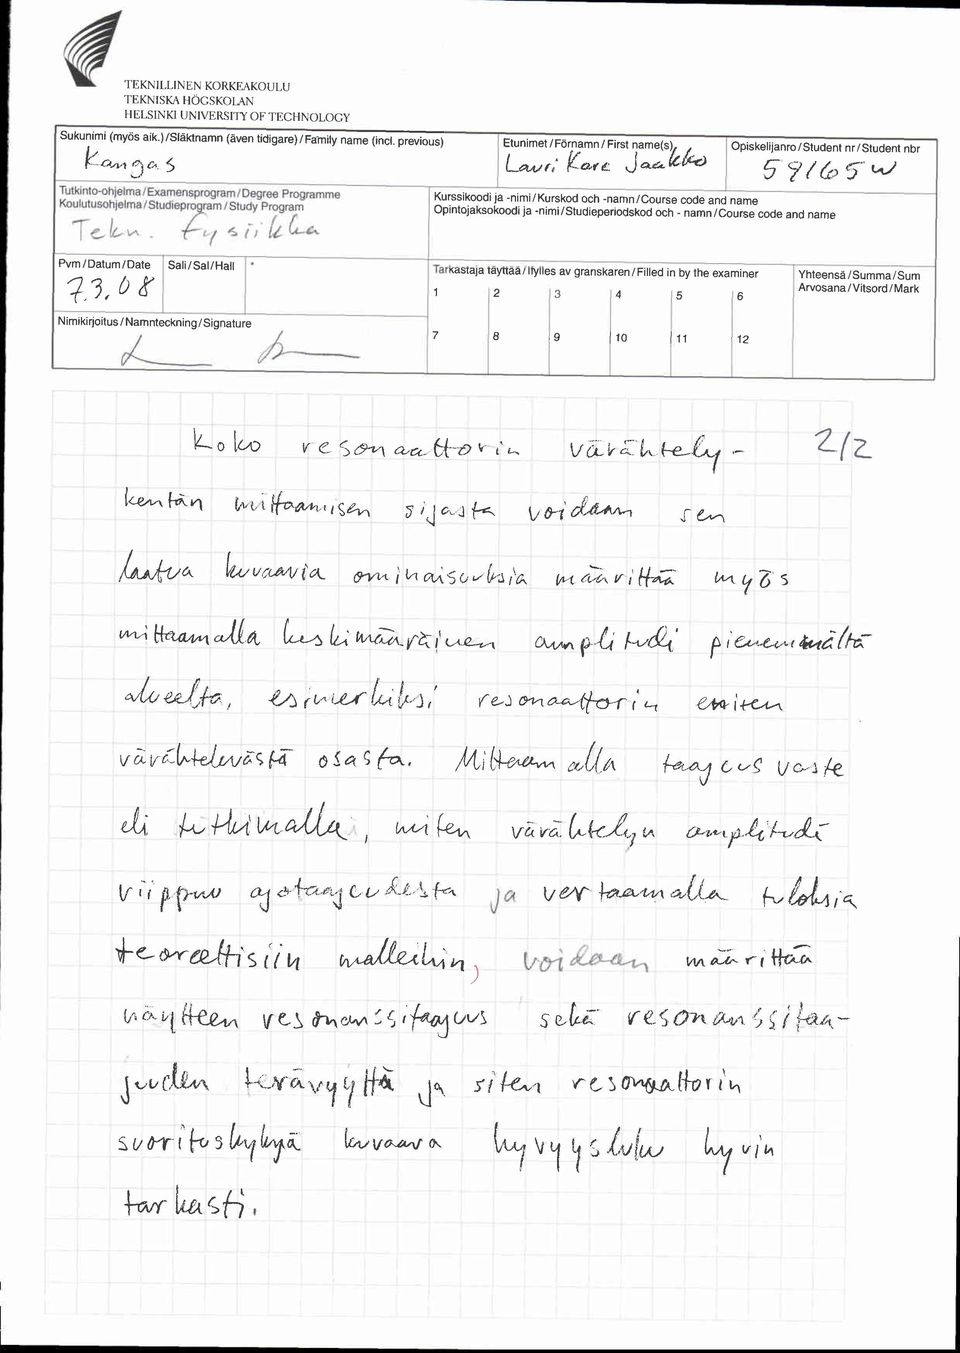 TEKNILLINEN KORKEAKOULU
TEKNISKA HÖGSKOLAN
HELSINKI UNIVERSITY OF TECHNOLOGY
Sukunimi (myös aik.)/Släktnamn (även tidigare)/Family name (incl. previous)
Kangas
Etunimet/Förnamn/First name(s)
Lauri Kare Jaakko
Opiskelijanro/Student nr/Student nbr
59165W
Tutkinto-ohjelma/Examensprogram/Degree Programme
Koulutusohjelma/Studieprogram/Study Program
Tekn. fysiikka
Kurssikoodi ja -nimi/Kurskod och -namn/Course code and name
Opintojaksokoodi ja -nimi/Studieperiodskod och - namn/Course code and name
Pvm/Datum/Date
7.3.08
Sali/Sal/Hall
Tarkastaja täyttää/Ifylles av granskaren/Filled in by the examiner
1 2 3 4 5 6
7 8 9 10 11 12
Yhteensä/Summa/Sum
Arvosana/Vitsord/Mark
Nimikirjoitus/Namnteckning/Signature
Koko resonaattorin värähtely- 2/2
kentän mittaamisen sijasta voidaan sen
laatua kuvaavia ominaisuuksia määrittää myös
mittaamalla keskimääräinen amplitudi pienemmältä
alueelta, esimerkiksi resonaattorin eniten
värähtelevästä osasta. Mittaamalla taajuusvaste
eli tutkimalla, miten värähtelyn amplitudi
riippuu ajotaajuudesta ja vertaamalla tuloksia
teoreettisiin malleihin, voidaan määrittää
näytteen resonanssitaajuus sekä resonanssitaa-
juuden terävyyttä ja siten resonaattorin
suorituskykyä kuvaava hyvyysluku hyvin
tarkasti.